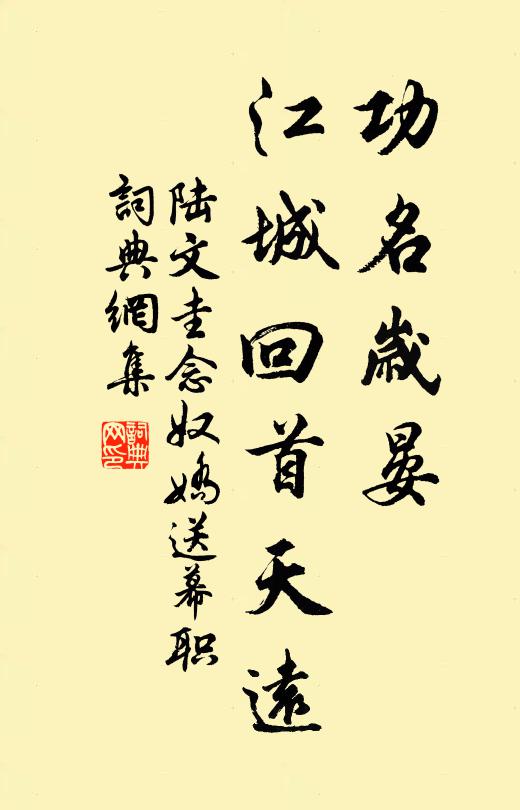 功名歲晏
江城回首天遠
陆文圭念奴嬌送幕职
詞典網集
詞典网印